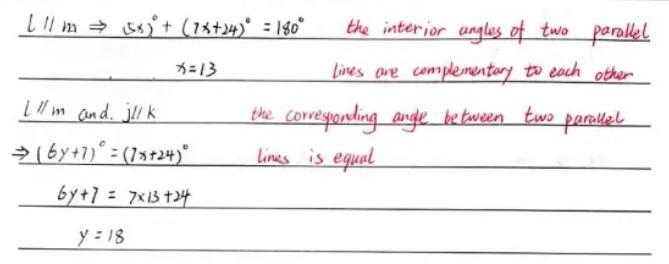 l // m ⇒ (5x)° + (7x+24)° = 180° the interior angles of two parallel
x=13 lines are complementary to each other
l // m and. j // k the corresponding angle between two parallel
⇒ (6y+7)° = (7x+24)° lines is equal
6y+7 = 7x13+24
y = 18